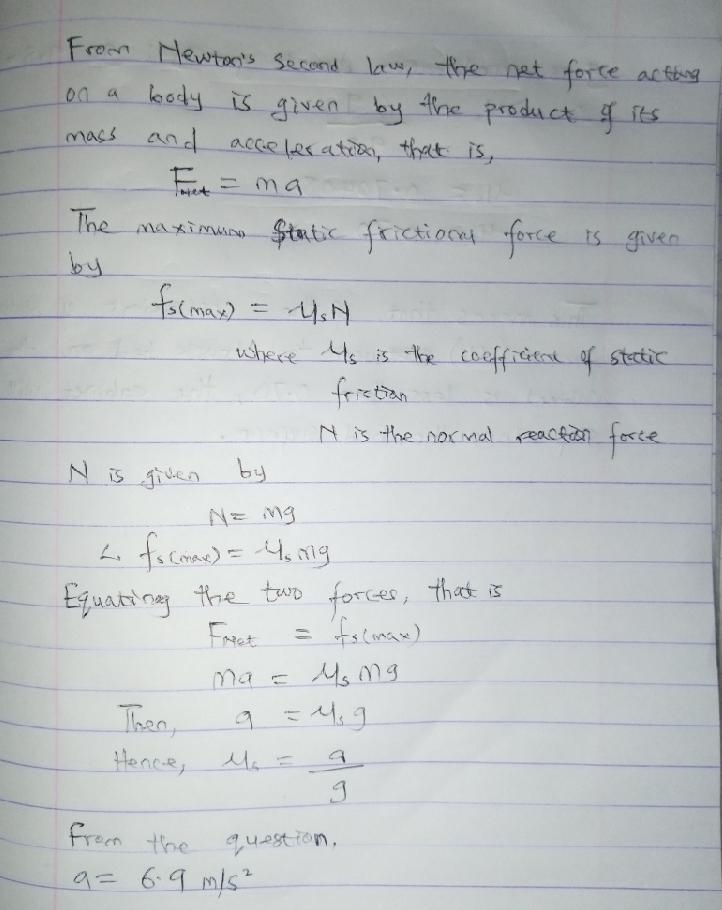 From Newton's Second law, the net force acting
on a body is given by the product of its
mass and acceleration, that is,
Fnet = ma
The maximum static frictional force is given
by
fs(max) = μsN
where μs is the coefficient of static
friction
N is the normal reaction force
N is given by
N = mg
∴ fs(max) = μsmg
Equating the two forces, that is
Fnet = fs(max)
ma = μsmg
Then, a = μsg
Hence, μs = a/g
From the question,
a = 6.9 m/s²